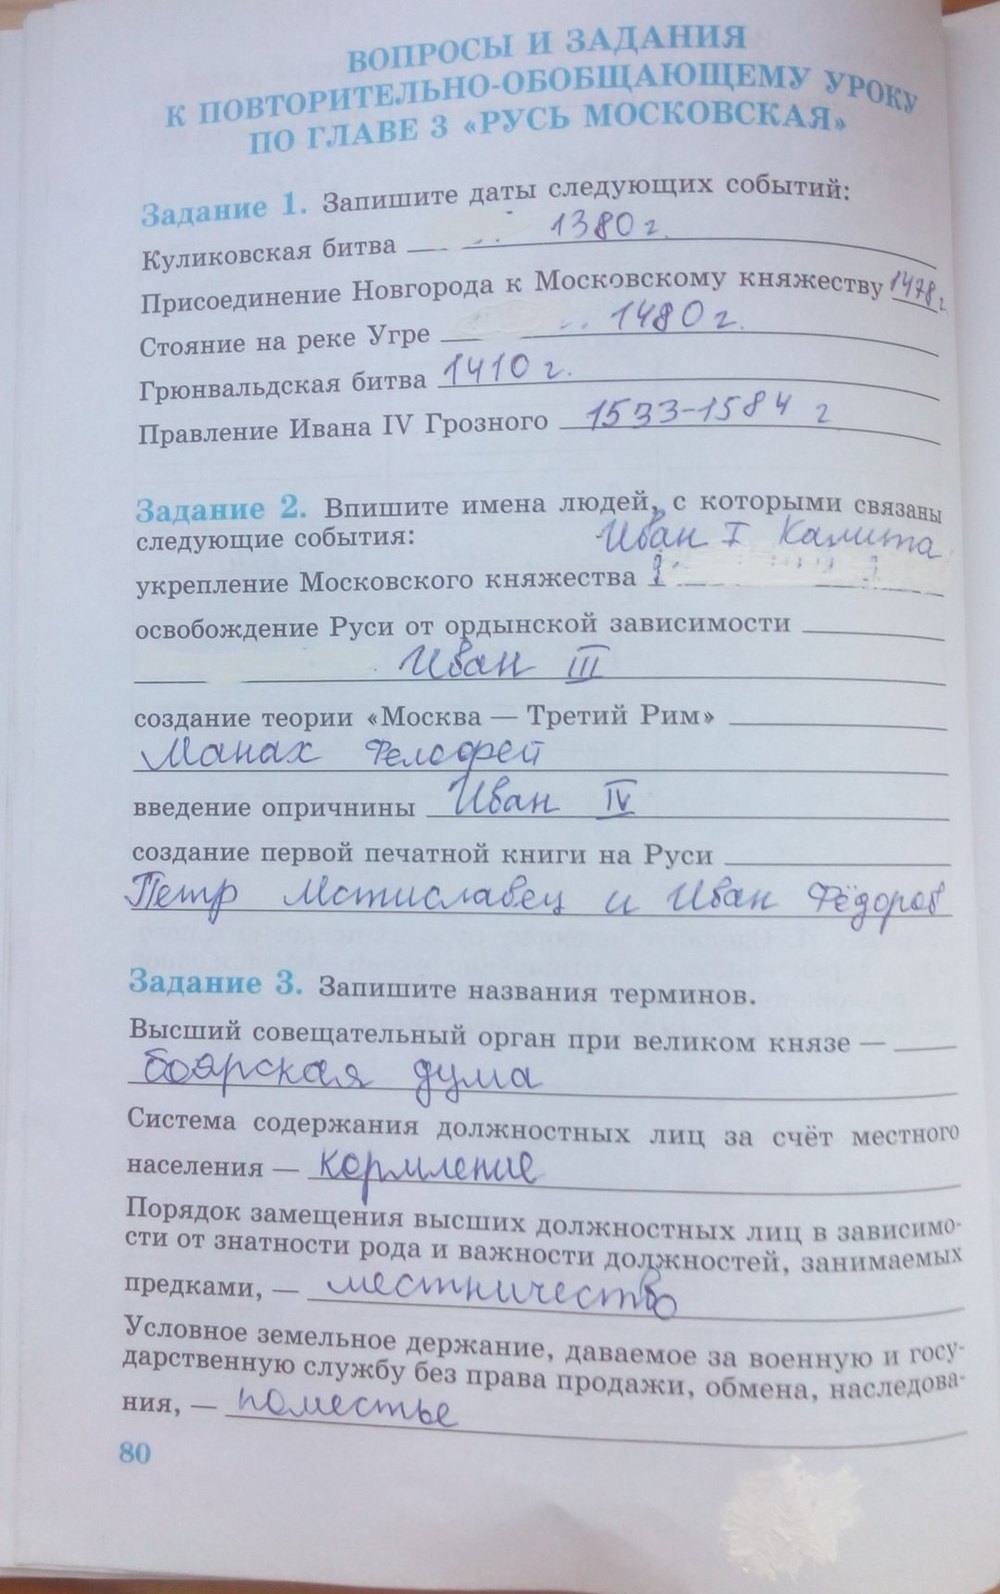 ВОПРОСЫ И ЗАДАНИЯ
К ПОВТОРИТЕЛЬНО-ОБОБЩАЮЩЕМУ УРОКУ
ПО ГЛАВЕ 3 «РУСЬ МОСКОВСКАЯ»
Задание 1. Запишите даты следующих событий:
Куликовская битва 1380 г.
Присоединение Новгорода к Московскому княжеству 1478 г.
Стояние на реке Угре 1480 г.
Грюнвальдская битва 1410 г.
Правление Ивана IV Грозного 1533-1584 г
Задание 2. Впишите имена людей, с которыми связаны
следующие события:
Иван I Калита
укрепление Московского княжества
освобождение Руси от ордынской зависимости
Иван III
создание теории «Москва — Третий Рим»
Манах Фелофей
введение опричнины Иван IV
создание первой печатной книги на Руси
Петр Мстиславец и Иван Фёдоров
Задание 3. Запишите названия терминов.
Высший совещательный орган при великом князе —
боярская дума
Система содержания должностных лиц за счёт местного
населения — кормление
Порядок замещения высших должностных лиц в зависимо-
сти от знатности рода и важности должностей, занимаемых
предками, — местничество
Условное земельное держание, даваемое за военную и госу-
дарственную службу без права продажи, обмена, наследова-
ния, — поместье
80